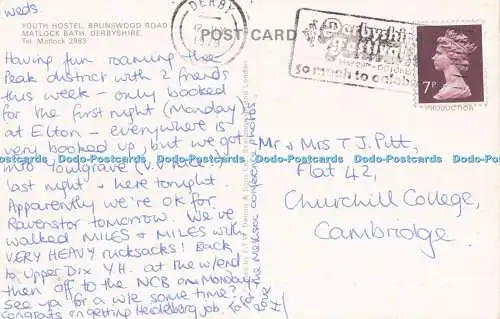 Weds.
YOUTH HOSTEL, BRUNSWOOD ROAD
MATLOCK BATH, DERBYSHIRE.
Tel. Matlock 2983
Having fun roaming the
Peak district with 2 friends
this week - only booked
for the first night (Monday)
at Elton - everywhere is
very booked up, but we got
into Youlgrave
last night & here tonight.
Apparently we're OK for
Ravenstor tomorrow. We've
walked MILES & MILES with
VERY HEAVY rucksacks! Back
to Upper Dix Y.H. at the w/end
then off to the NCB on Monday.
See ya for a w/e some time?
Congrats on getting Heidelberg job.
the conference photos
love
DERBY
1979
POST CARD
Derbyshire
so much to
7P
Mr & Mrs T J Pitt,
Flat 42,
Churchill College,
Cambridge.
Dodo-Postcards Dodo-Postcards Dodo-Postcards Dodo-Postcards Dodo-Postcards